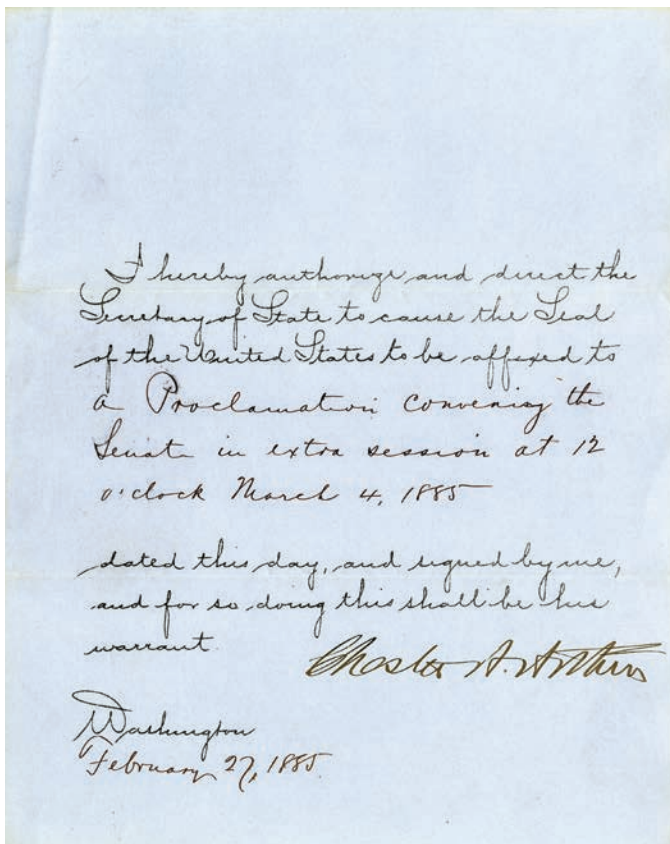 I hereby authorize and direct the
Secretary of State to cause the Seal
of the United States to be affixed to
a Proclamation convening the
Senate in extra session at 12
o'clock March 4, 1885
dated this day, and signed by me,
and for so doing this shall be his
warrant.
Chester A. Arthur
Washington
February 27, 1885.